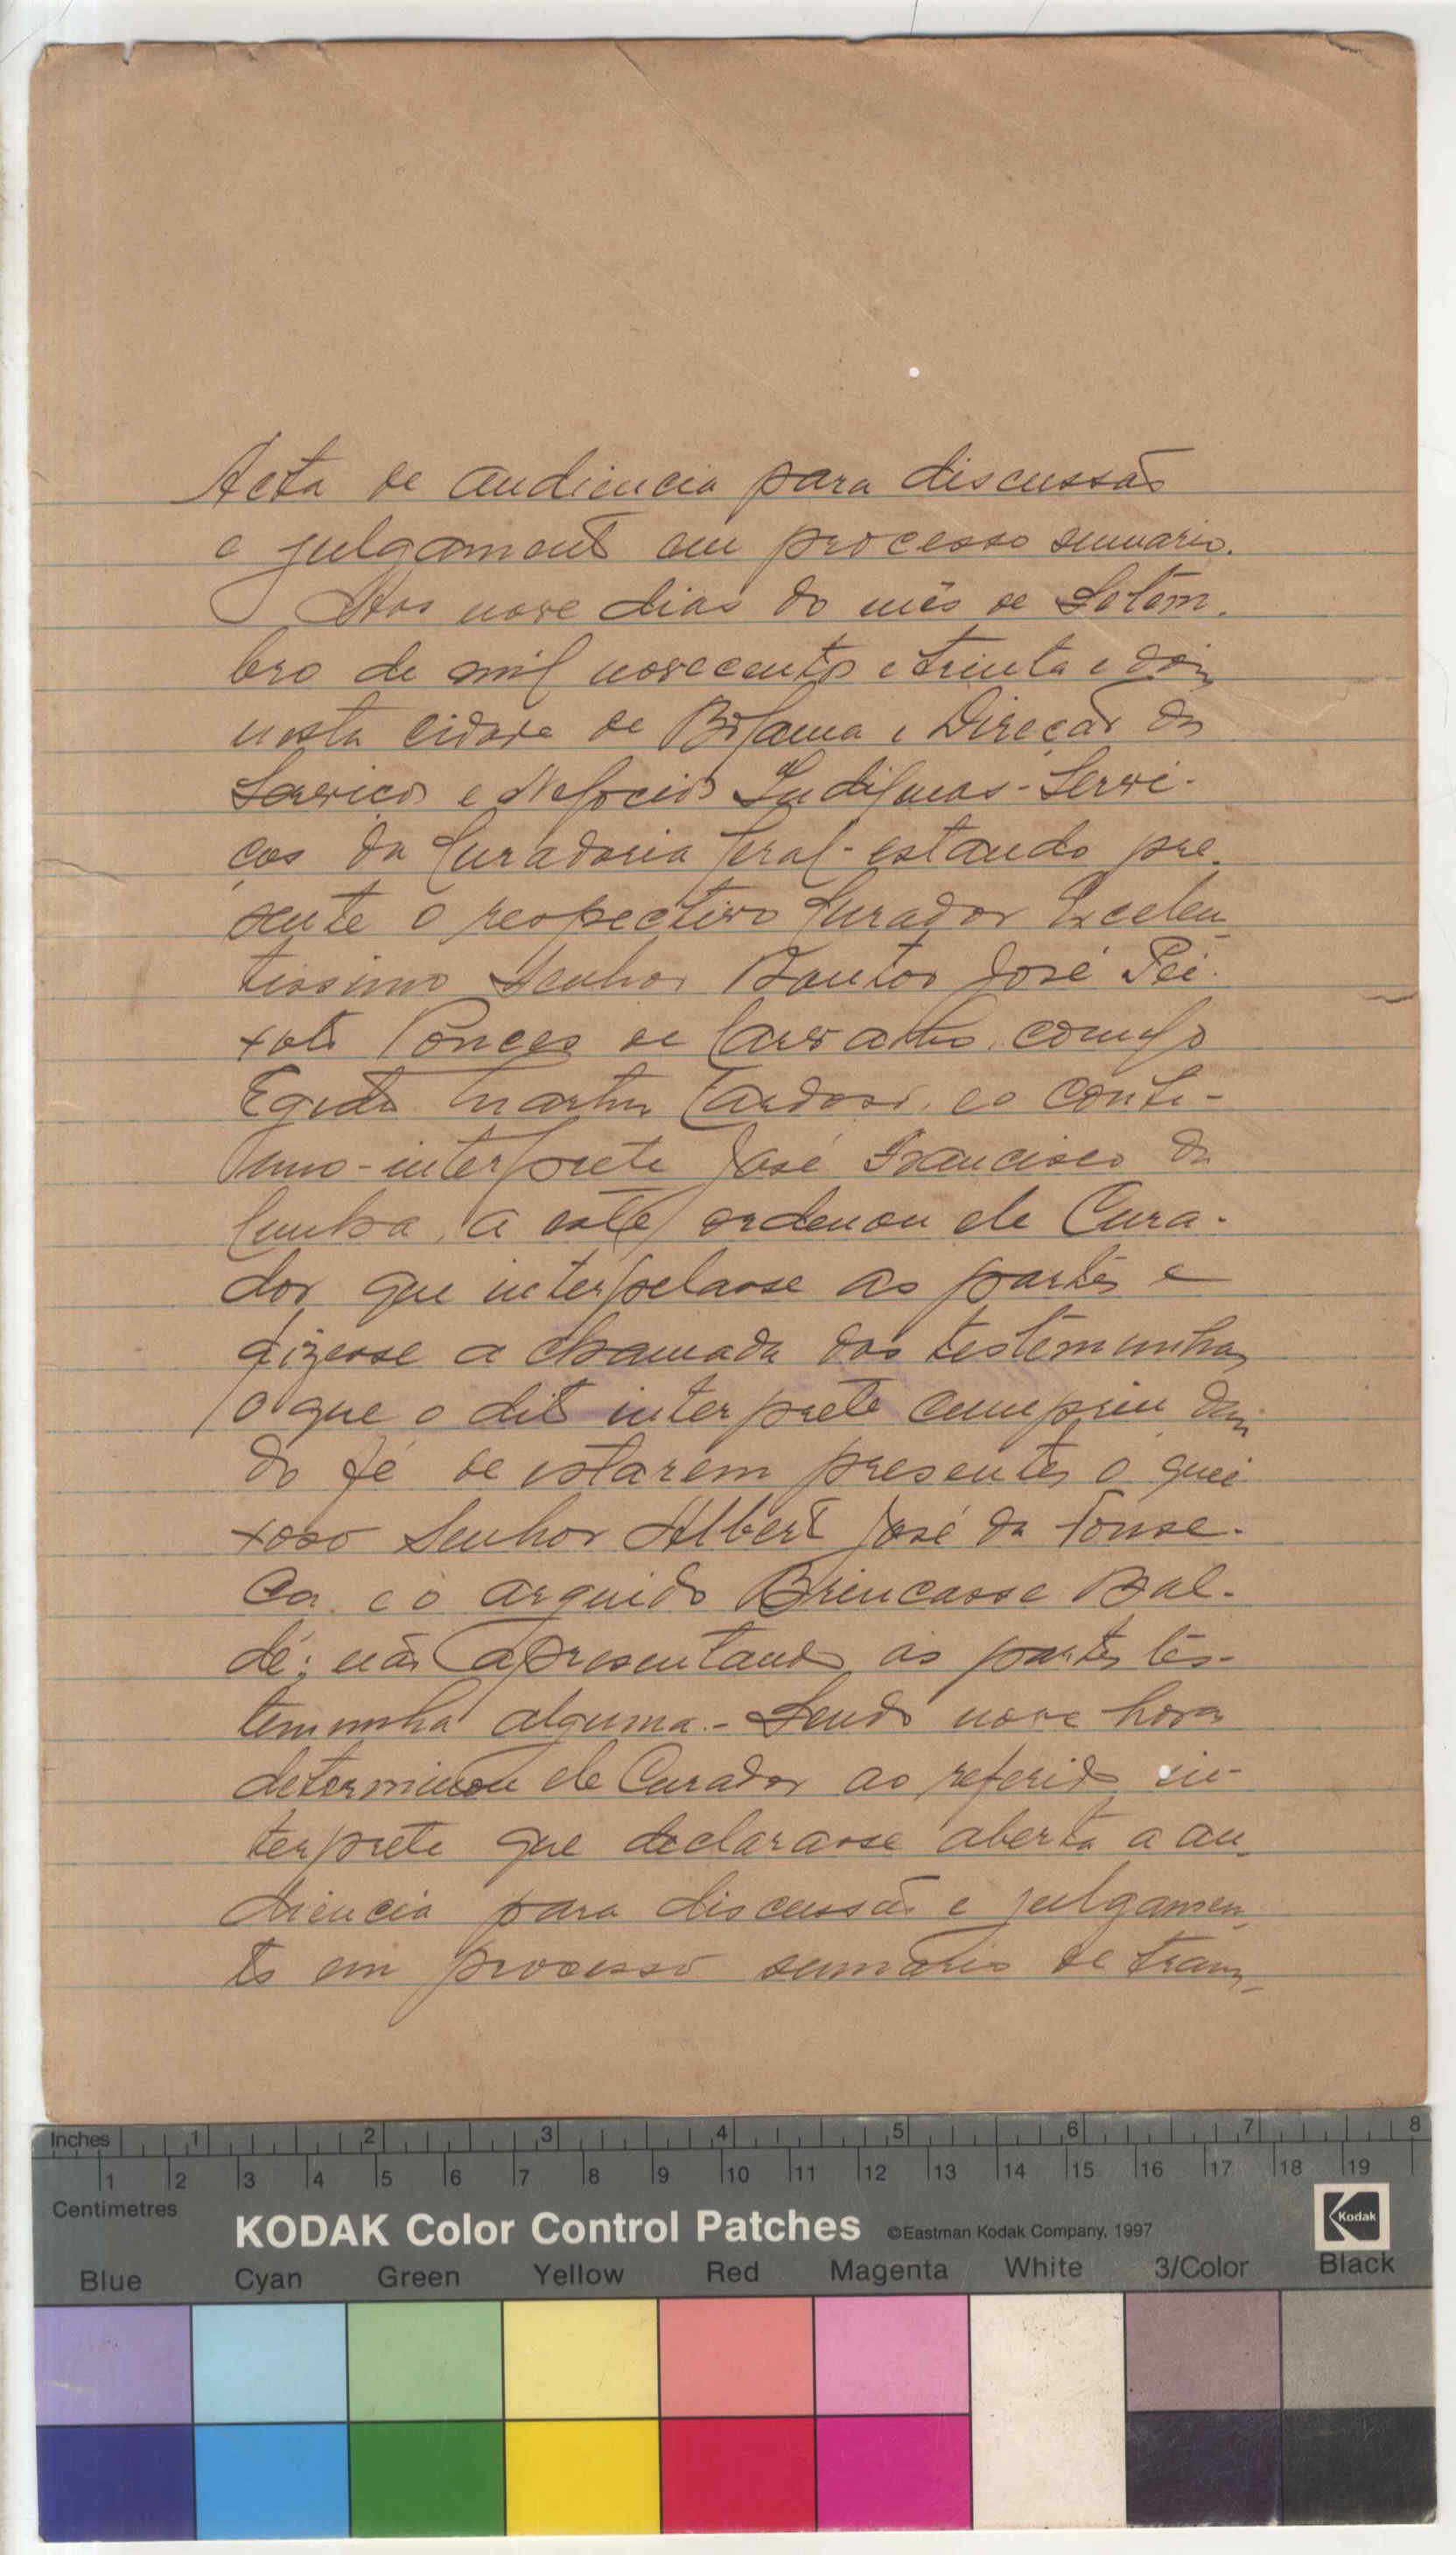 Acta de audiencia para discussão
e julgamento em processo sumario.
Aos nove dias do mês de Setem-
bro de mil novecentos e trinta e dois
nesta cidade de Bolama e Direcção dos
Serviços e Negocios Indigenas - Servi-
ços da Curadoria Geral - estando pre-
sente o respectivo Curador Excelen-
tissimo Senhor Doutor José Pei-
xoto Ponces de Carvalho, comigo
Egidio Martins Cardoso, e o conti-
nuo-interprete José Francisco da
Cunha, a este ordenou ele Cura-
dor que interpelasse as partes e
fizesse a chamada das testemunhas
o que o dito interprete cumpriu dan-
do fé de estarem presentes o quei
xoso Senhor Alberto José da Fonse-
ca e o arguido Brincasse Bal-
dé; não apresentando as partes tes-
temunha alguma. - Sendo nove horas
determinou ele Curador ao referido in-
terprete que declarasse aberta a au-
diencia para discussão e julgamen-
to em processo sumário de trans-
Inches 1 2 3 4 5 6 7 8
1 2 3 4 5 6 7 8 9 10 11 12 13 14 15 16 17 18 19
Centimetres
KODAK Color Control Patches ©Eastman Kodak Company, 1997 Kodak
Blue Cyan Green Yellow Red Magenta White 3/Color Black